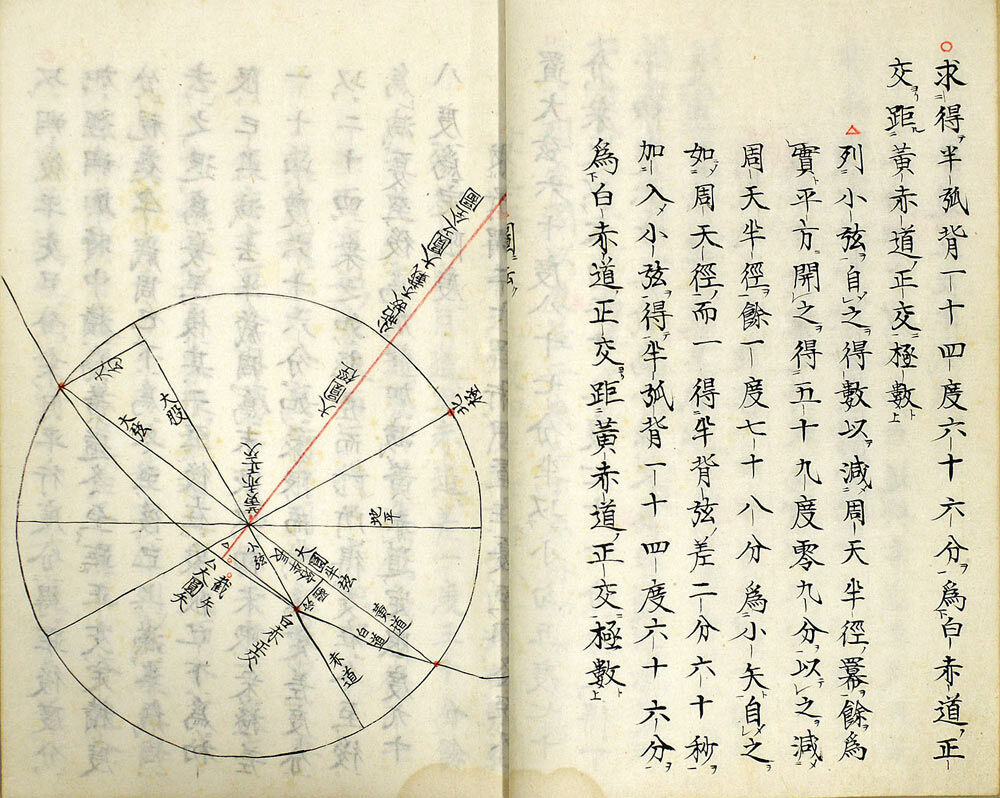 求得半弧背一十四度六十六分爲白赤道正
交距黃赤道正交極數
列小弦自之得數以減周天半徑冪餘爲
實平方開之得五十九度零九分以之減
周天半徑餘一度七十八分爲小矢自之
如周天徑而一得半背弦差二分六十秒
加入小弦得半弧背一十四度六十六分
爲白赤道正交距黃赤道正交極數
大圓徑
北極
大勾
大股
大弦
黃赤正交
地平
小弦
大圓半弦
黃道
白道
白赤正交
赤道
截矢
大圓矢